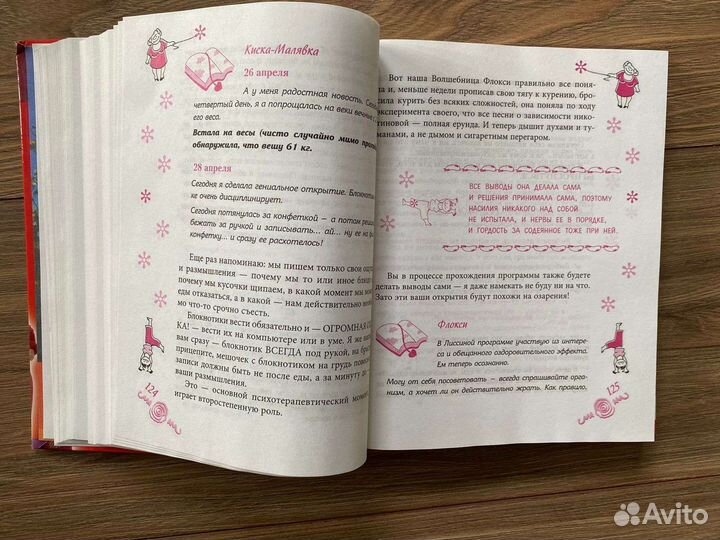 Киска-Малявка
26 апреля
А у меня радостная новость.
четвертый день, я а попрощалась на веки вечные с
его веса.
Встала на весы (чисто случайно мимо
обнаружила, что вешу 61 кг.
28 апреля
Сегодня я сделала гениальное открытие.
ке очень дисциплинирует.
Сегодня потянулась за конфеткой — а потом
бежать за ручкой и записывать... ай... ну ее на
конфетку... и сразу ее расхотелось!
Еще раз напоминаю: мы пишем только свои
и размышления — почему мы то или иное
почему мы кусочки щипаем, в какой момент мы
еды отказаться, а в какой — нам действительно
мо что-то срочно съесть.
Блокнотики вести обязательно и — ОГРОМНАЯ
КА! — вести их на компьютере или в уме. Я же
вам сразу — блокнотик ВСЕГДА под рукой, на
прицепите, мешочек с блокнотиком на грудь
записи должны быть не после еды, а за минуту до
ваши размышления.
Это — основной психотерапевтический
играет второстепенную роль.
124
Вот наша Волшебница Флокси правильно все поня-
ла и, меньше недели прописав свою тягу к курению, бро-
сила курить без всяких сложностей, она поняла по ходу
эксперимента своего, что все песни о зависимости нико-
тиновой — полная ерунда. И теперь дышит духами и ту-
манами, а не дымом и сигаретным перегаром.
ВСЕ ВЫВОДЫ ОНА ДЕЛАЛА САМА
И РЕШЕНИЯ ПРИНИМАЛА САМА, ПОЭТОМУ
НАСИЛИЯ НИКАКОГО НАД СОБОЙ
НЕ ИСПЫТАЛА, И НЕРВЫ ЕЕ В ПОРЯДКЕ,
И ГОРДОСТЬ ЗА СОДЕЯННОЕ ТОЖЕ ПРИ НЕЙ.
Вы в процессе прохождения программы также будете
делать выводы сами — я даже намекать не буду ни на что.
Зато эти ваши открытия будут похожи на озарения!
Флокси
В Лиссиной программе участвую из интере-
са и обещанного оздоровительного эффекта.
Ем теперь осознанно.
Могу от себя посоветовать — всегда спрашивайте орга-
низм, а хочет ли он действительно жрать. Как правило,
125
Avito